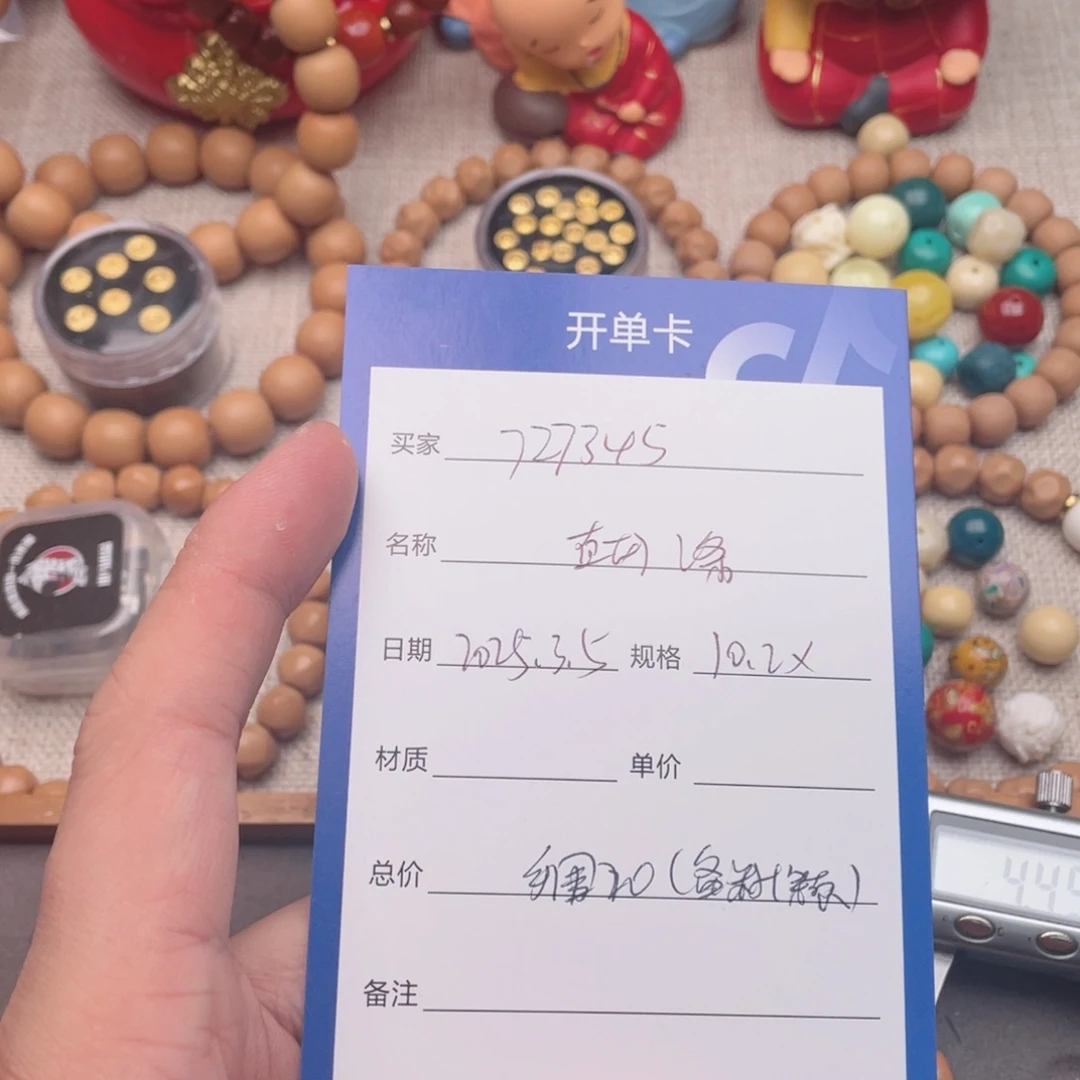 开单卡
买家 727345
名称 直切1条
日期 2025.3.5 规格 10.2X
材质 单价
总价 20(备
备注
449